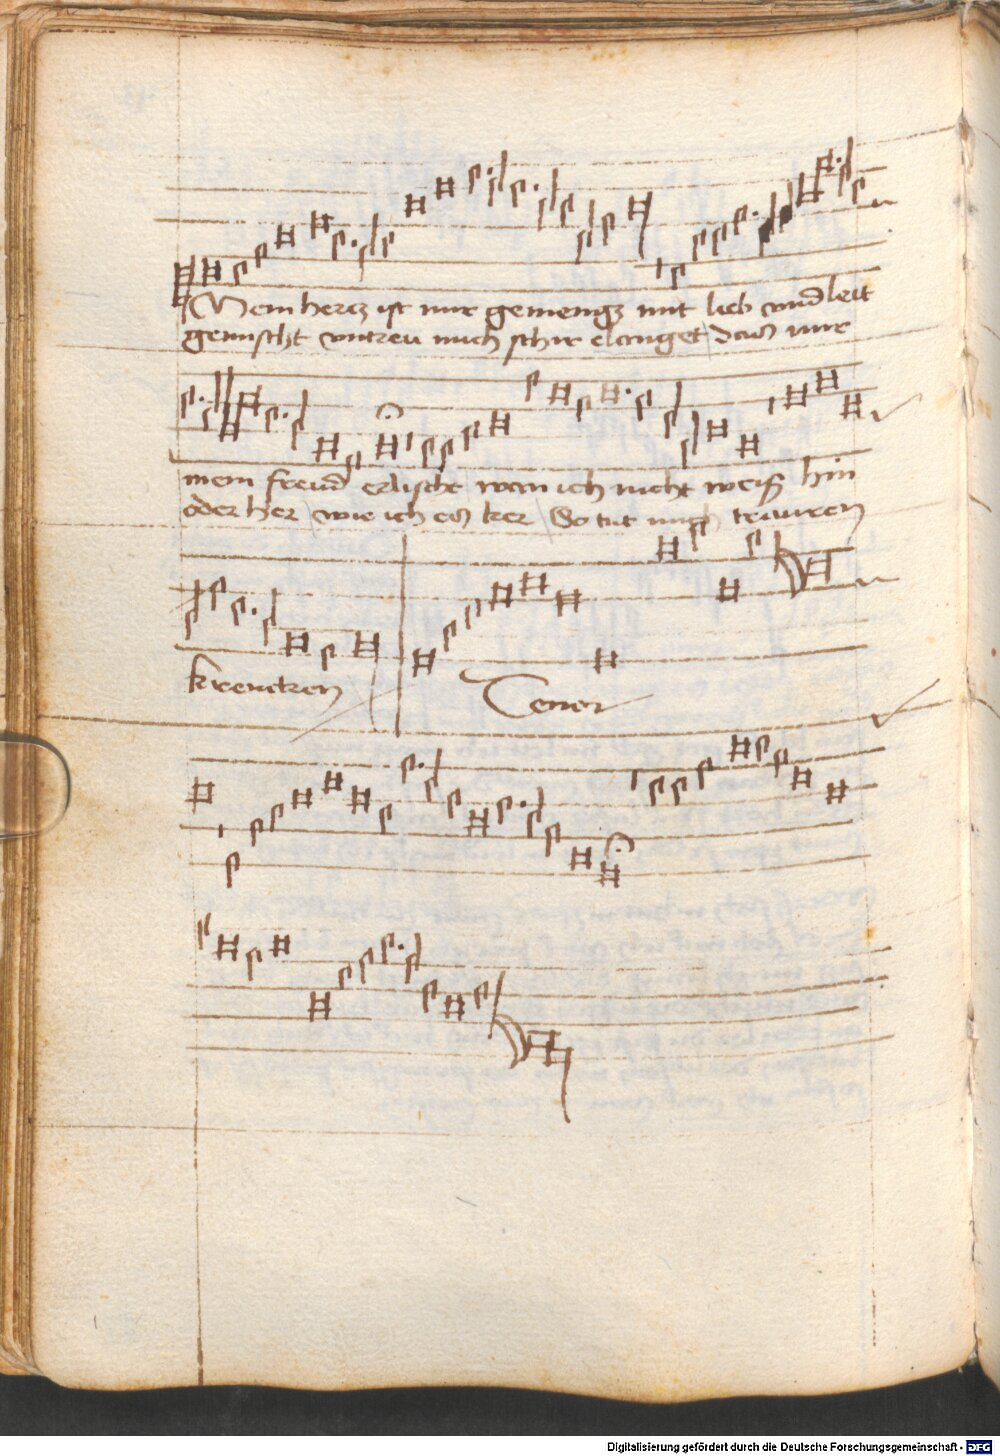 Mein hercz ist mir gemengt mit lieb vnd leit
gemischt vntreu mich schir elanget / das mir
mein freud erlischt wan ich nicht weiß hin
oder her / wie ich es ker / So tut mich trauren
krenczen Tenor
Digitalisierung gefördert durch die Deutsche Forschungsgemeinschaft - DFG